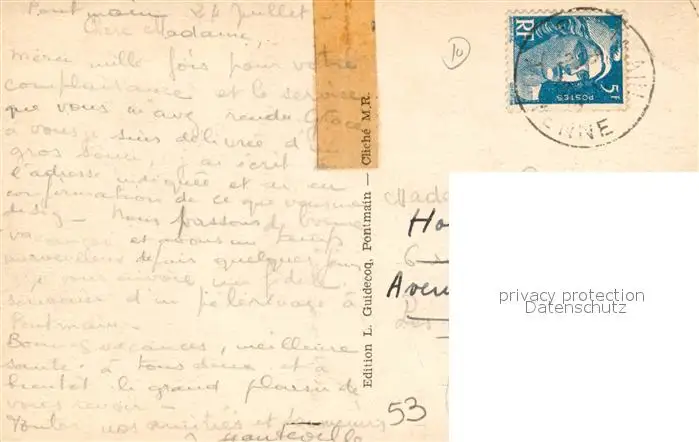 Pontmain 24 Juillet -
Chère Madame,
Merci mille fois pour votre
complaisance et le service
que vous m'avez rendu. Grâce
à vous je suis délivrée d'un
gros souci, j'ai écrit à
l'adresse indiquée et ai eu
confirmation de ce que vous me
Nous passons de bonnes
vacances et avons un temps
merveilleux depuis quelques jours
je vous envoie un fidèle
souvenir d'un pèlerinage à
Pontmain -
Bonnes vacances, meilleure
santé à tous deux et à
bientôt le grand plaisir de
vous revoir -
Toutes nos amitiés et
Hauteville
Edition L. Guidecoq, Pontmain — Cliché M.R.
10
RF
POSTES
5F
ENNE
Mada
Ho
6
Aven
53
privacy protection
Datenschutz